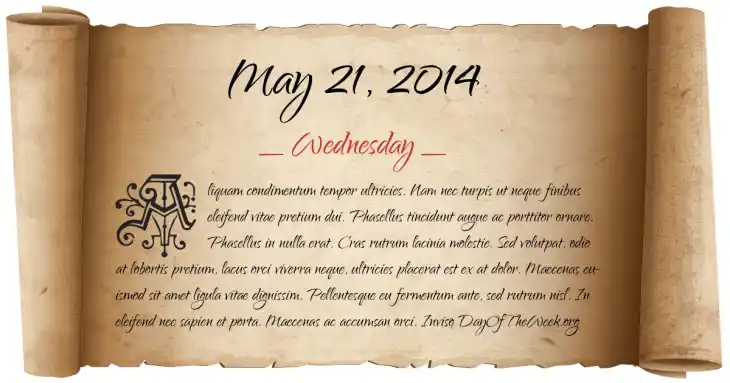 May 21, 2014
_ Wednesday _
Aliquam condimentum tempor ultricies. Nam nec turpis ut neque finibus
eleifend vitae pretium dui. Phasellus tincidunt augue ac porttitor ornare.
Phasellus in nulla erat. Cras rutrum lacinia molestie. Sed volutpat, odio
at lobortis pretium, lacus orci viverra neque, ultricies placerat est ex at dolor. Maecenas eu-
ismod sit amet ligula vitae dignissim. Pellentesque eu fermentum ante, sed rutrum nisl. In
eleifend nec sapien et porta. Maecenas ac accumsan orci. Inviso DayOfTheWeek.org